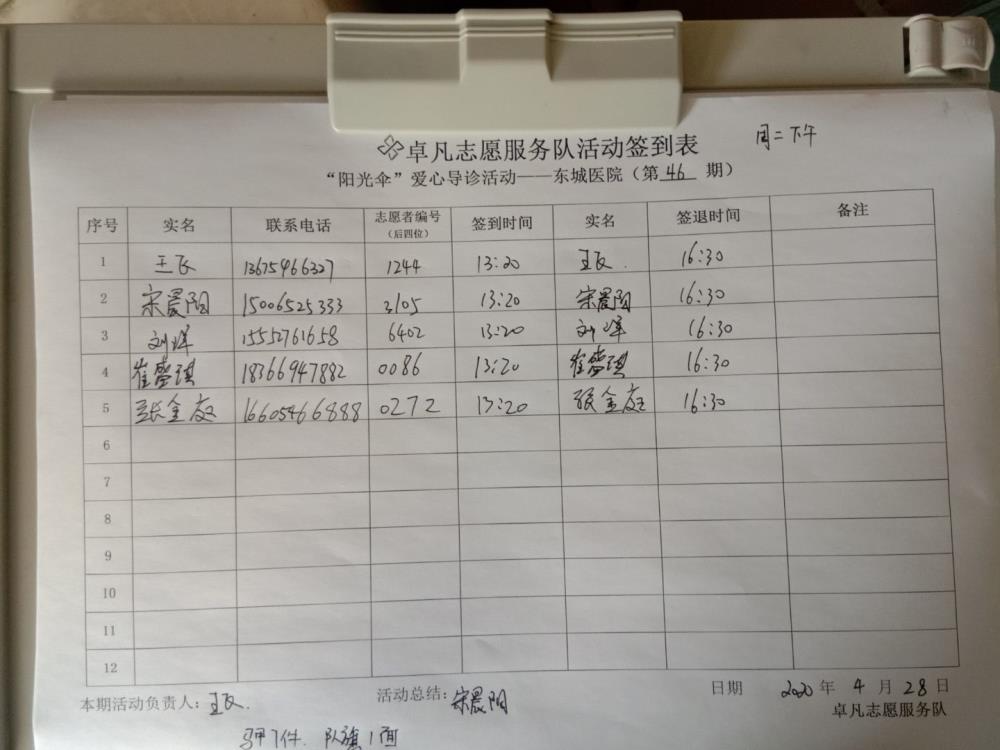 周二下午
卓凡志愿服务队活动签到表
“阳光伞”爱心导诊活动——东城医院（第 46 期）
序号 实名 联系电话 志愿者编号（后四位） 签到时间 实名 签退时间 备注
1 王飞 13675466327 1244 13:20 王飞. 16:30
2 宋晨阳 15006525333 3105 13:20 宋晨阳 16:30
3 刘峰 15552761658 6402 13:20 刘峰 16:30
4 崔 琪 18366947882 0086 13:20 崔 琪 16:30
5 张金 16605466888 0272 13:20 张金 16:30
6
7
8
9
10
11
12
本期活动负责人：王飞. 活动总结：宋晨阳 日期 2020 年 4 月 28 日
卓凡志愿服务队
马甲7件. 队旗1面